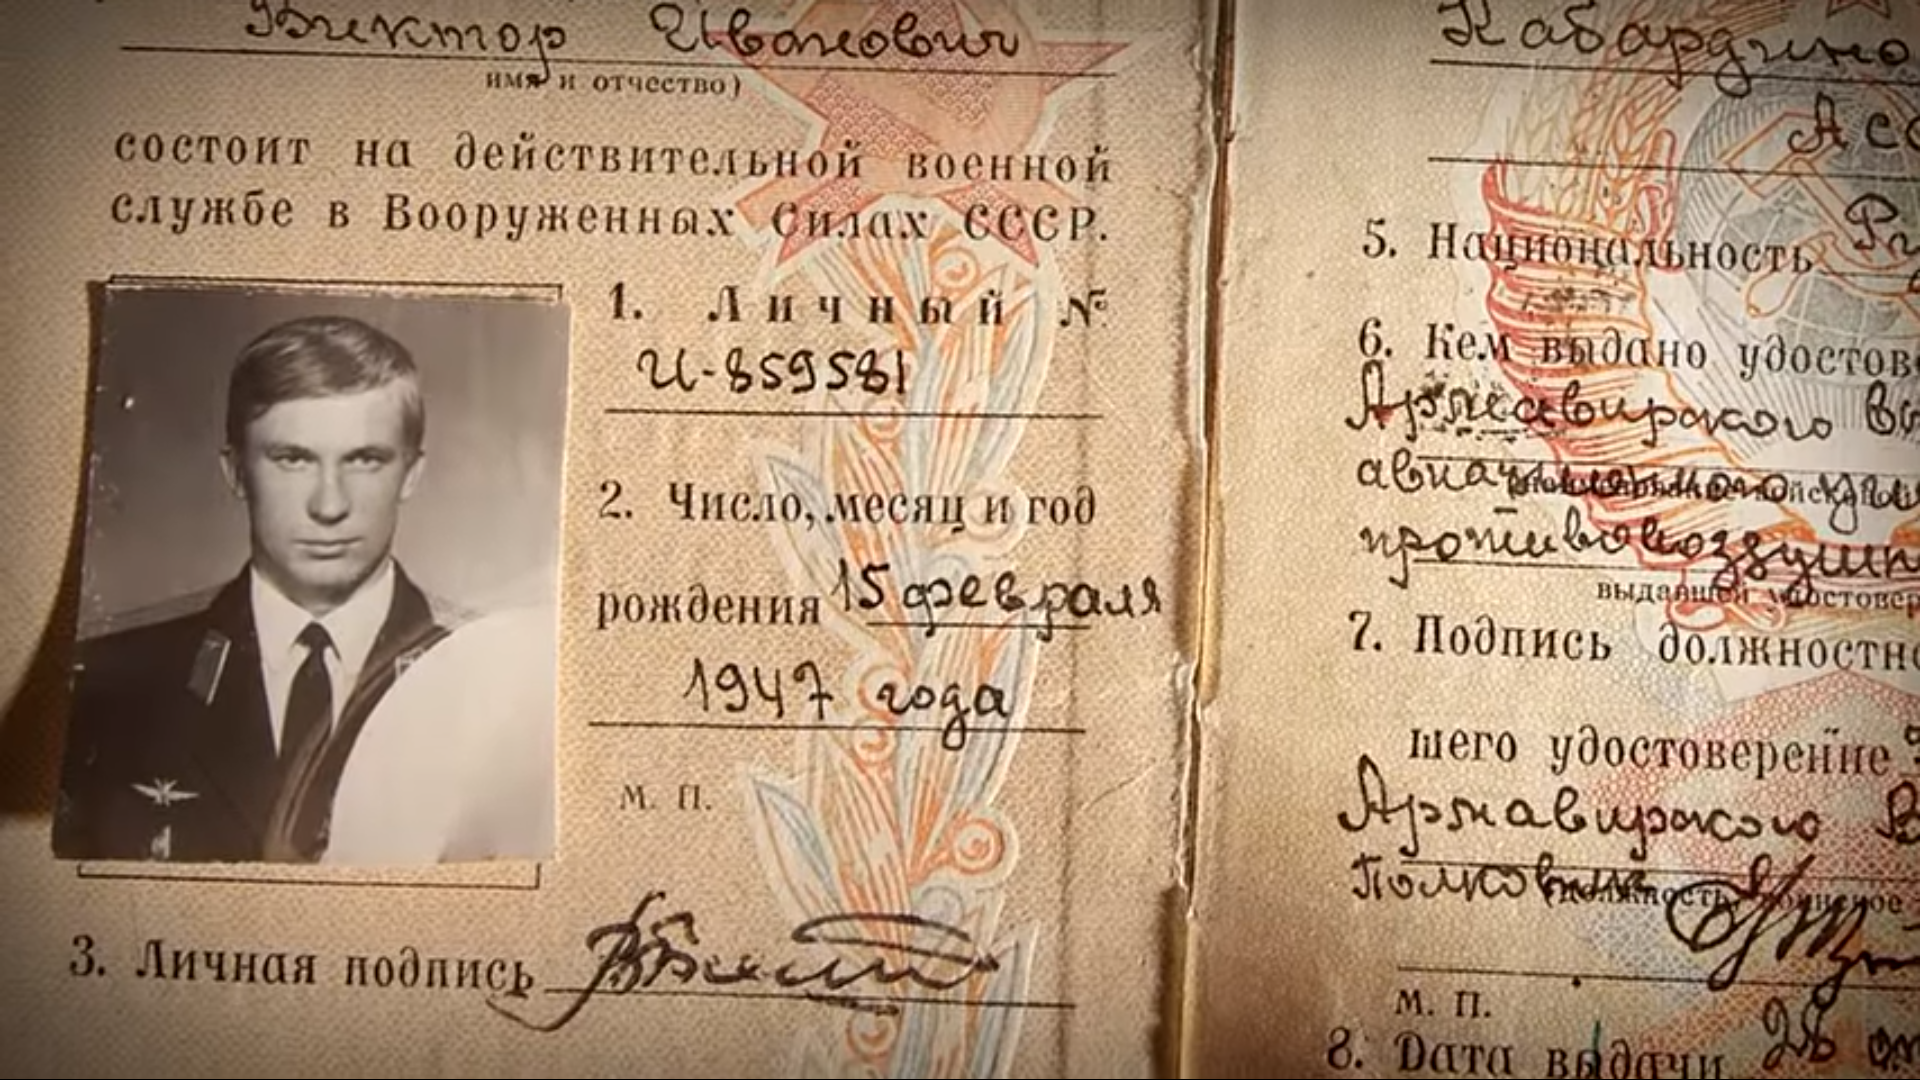 Виктор Иванович
имя и отчество)
состоит на действительной военной
службе в Вооруженных Силах СССР.
1. Личный №
И-859581
2. Число, месяц и год
рождения 15 февраля
1947 года
М. П.
3. Личная подпись
Кабардино
АСС
5. Национальность
6. Кем выдано удостов
Армавирского
авиационного
противовоздушн
выдавшей удостовер
7. Подпись должностно
шего удостоверение
Армавирского В
Полковник
М. П.
8. Дата выдачи 28